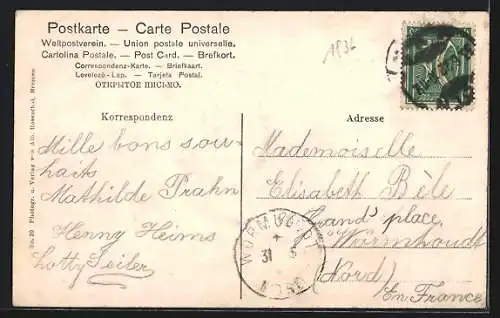 Postkarte — Carte Postale
Weltpostverein. — Union postale universelle.
Cartolina Postale. — Post Card. — Brefkort.
Correspondenz-Karte. — Briefkaart.
Levelező-Lap. — Tarjeta Postal.
ОТКРЫТОЕ ПИСЬМО.
1936
Korrespondenz
Adresse
Mille bons sou-
haits
Mathilde Prahn
Henny Heims
Lotty Seiler
Mademoiselle
Elisabeth Bèle
Grand' place
Wormhoudt
(Nord)
En France
WORMHOUDT
31
NORD
Photogr. u. Verlag v. Alb. Rosenthal, Bremen